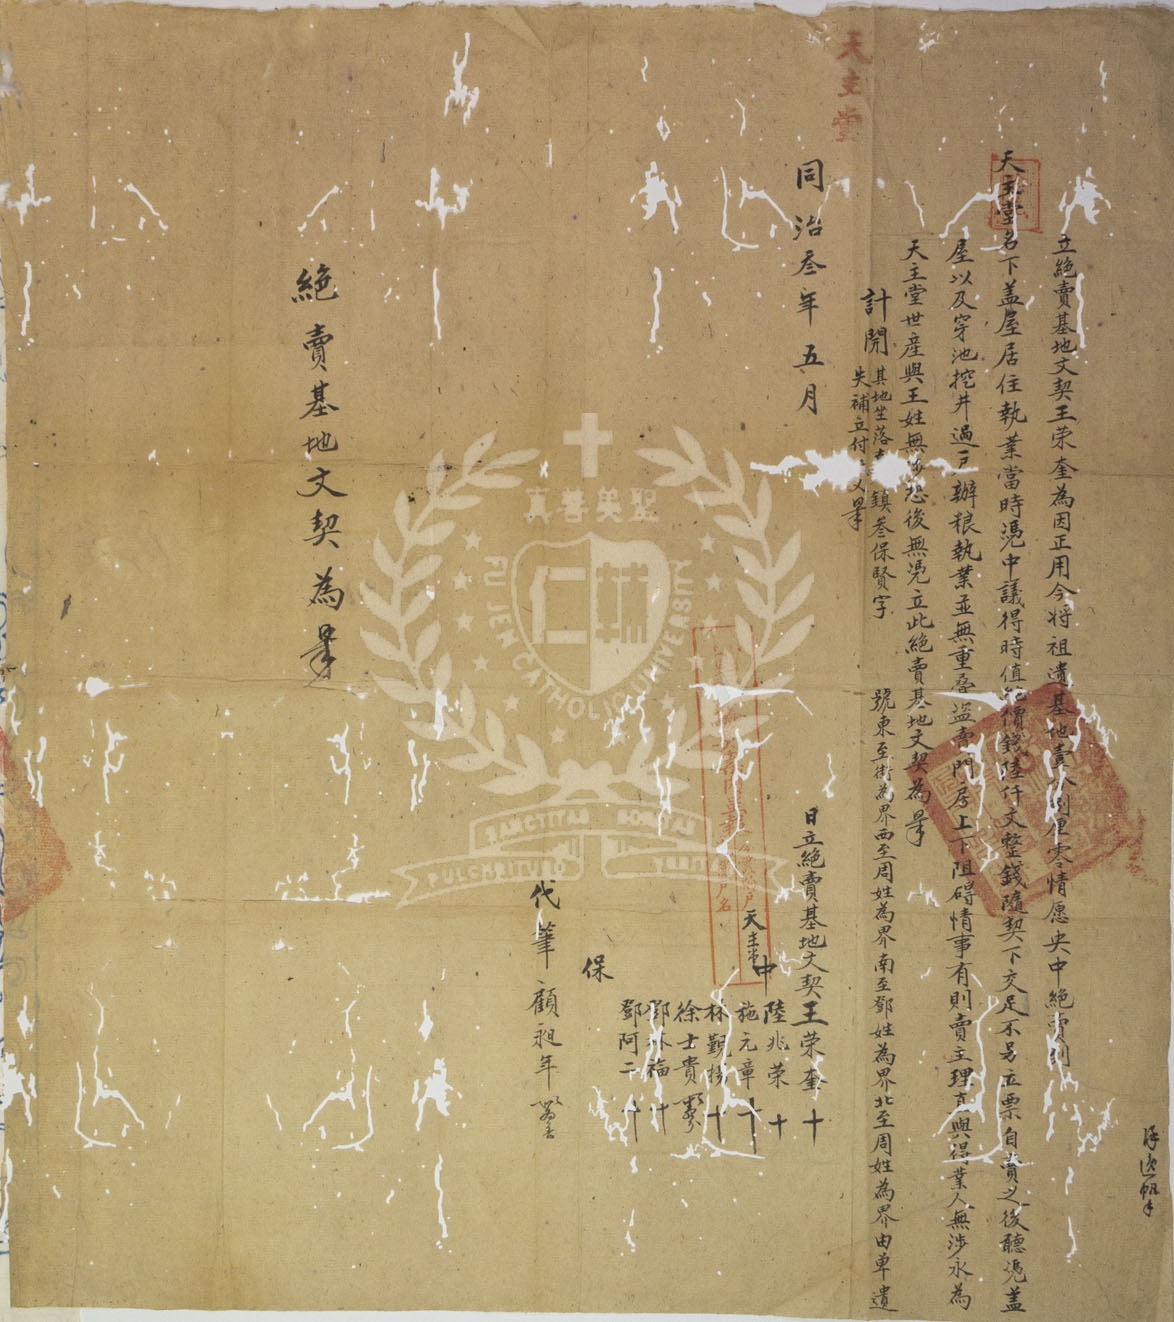 立絕賣基地文契王荣奎為因正用今将祖遺基地壹分捌厘零情愿央中絕賣到
天主堂名下盖屋居住執業當時憑中議得時值絕價錢陸仟文整錢隨契下交足不另立票自賣之後聽憑盖
屋以及穿池挖井過戶辦粮執業並無重叠盗賣門房上下阻碍情事有則賣主理直與得業人無涉永為
天主堂世産與王姓無涉恐後無憑立此絕賣基地文契為㨿
計開 其地坐落 鎮叄保賢字 號東至街為界西至周姓為界南至鄧姓為界北至周姓為界由单遺
失補立付 㨿
天主堂
同治叄年五月 日立絕賣基地文契王荣奎十
中 陸兆荣十
施元章十
林觀揚十
徐士貴
鄧林福十
鄧阿二十
保
天主堂
代筆顧昶年
絕賣基地文契為㨿
聖美善真
FU JEN CATHOLIC UNIVERSITY
SANCTITAS BONITAS
PULCRITUDO VERITAS